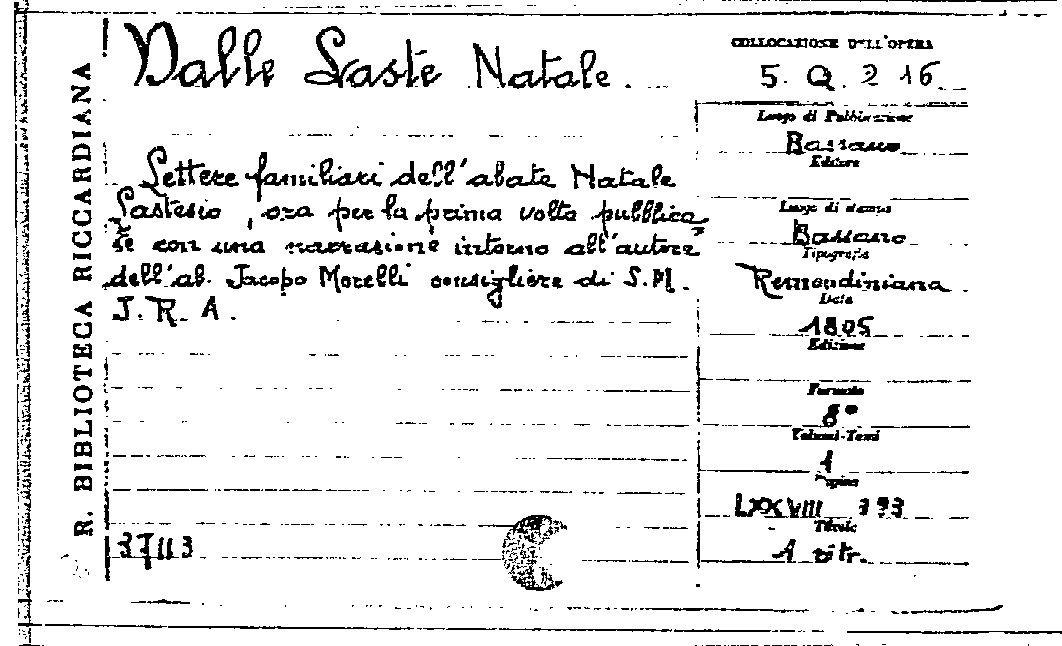 R. BIBLIOTECA RICCARDIANA
Dalle Laste Natale.
Lettere familiari dell'abate Natale
Lastesio, ora per la prima volta pubblica=
te con una narrazione intorno all'autore
dell'ab. Jacopo Morelli consigliere di S.M.
I.R.A.
37113
COLLOCAZIONE DELL'OPERA
5. Q. 2 16.
Luogo di Pubblicazione
Bassano
Editore
Luogo di stampa
Bassano
Tipografia
Remondiniana.
Data
1805
Edizione
Formato
8°
Volumi-Tomi
1
Pagine
LXXVIII
Tavole
1 ritr.